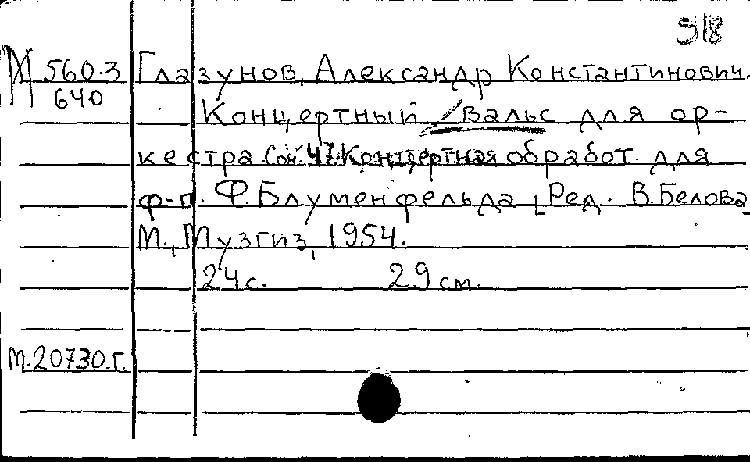 918
М 560.3 Глазунов, Александр Константинович.
640
Концертный вальс для ор-
кестра. Соч. 47. Концертная обработ. для
ф-п. Ф. Блуменфельда [Ред. В. Белова]
М., Музгиз, 1954.
24 с. 29 см.
М.20730.г.